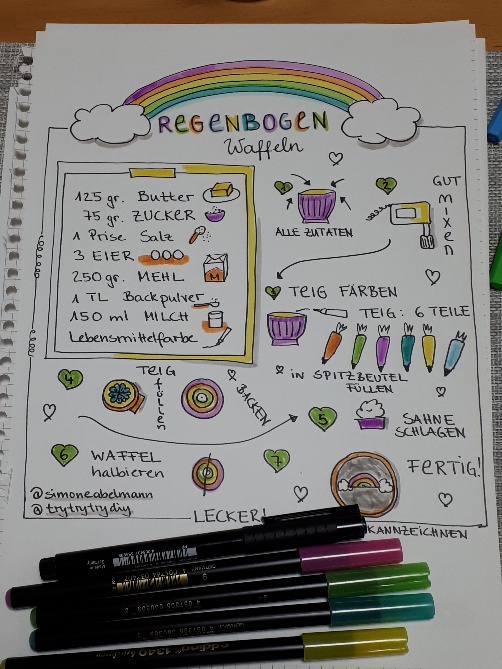 REGENBOGEN
Waffeln
125 gr. Butter
75 gr. ZUCKER
1 Prise Salz
3 EIER
250 gr. MEHL
M
1 TL Backpulver
150 ml MILCH
Lebensmittelfarbe
1
ALLE ZUTATEN
2
GUT
MIXEN
TEIG FÄRBEN
TEIG: 6 TEILE
IN SPITZBEUTEL
FÜLLEN
4
TEIG
füllen
BACKEN
5
SAHNE
SCHLAGEN
6
WAFFEL
halbieren
7
FERTIG!
@simoneabelmann
@trytrytry.diy
LECKER!
KANNZEICHNEN
edding 1340